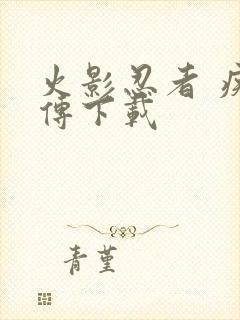 火影忍者 疾
傳下載
青堇